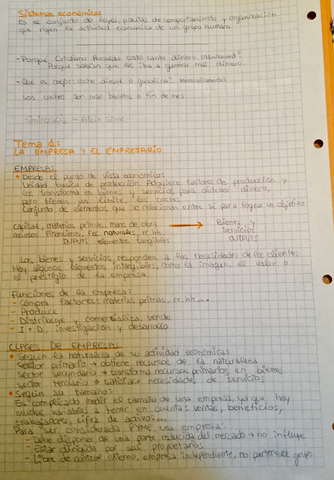 Sistemas económicos
Es el conjunto de leyes, pautas de comportamiento y organización
que rigen la actividad económica de un grupo humano.
- Porque Cristiano Ronaldo costó tanto dinero
Porque sabían que les iba a generar más dinero
- Que es mejor coche diesel o gasolina?
Los coches son más baratos a fin de mes.
Tema 1:
LA EMPRESA Y EL EMPRESARIO
EMPRESA:
• Desde el punto de vista económico:
Unidad básica de producción. Adquiere factores de producción y
los transforma en bienes y servicios para obtener dinero,
pero tienen un límite, los costes.
Conjunto de elementos que se relacionan entre sí para lograr un objetivo.
Capital, materias primas, mano de obra → Bienes y
recursos financieros, rr. naturales, rr. hh. servicios
INPUTS elementos tangibles OUTPUTS
Los bienes y servicios responden a las necesidades de los clientes.
Hay algunos elementos intangibles, como la imagen, el valor o
el prestigio de la empresa.
Funciones de la empresa:
- Compra factores: materias primas, rr. hh...
- Produce
- Distribuye y comercializa, vende
- I + D, investigación y desarrollo
CLASES DE EMPRESA:
• Según la naturaleza de su actividad económica:
Sector primario → obtiene recursos de la naturaleza
Sector secundario → transforma recursos primarios en bienes
sector terciario → satisface necesidades de servicios
• Según su tamaño:
Es complicado medir el tamaño de una empresa, ya que hay
muchas variables a tener en cuenta: ventas, beneficios,
trabajadores, cifra de activos...
Para ser considerada PYME, una empresa:
- Debe disponer de una parte reducida del mercado → no influye
- Estar dirigida por sus propietarios
- Libre de control externo, empresa independiente, no pertenece grupo.